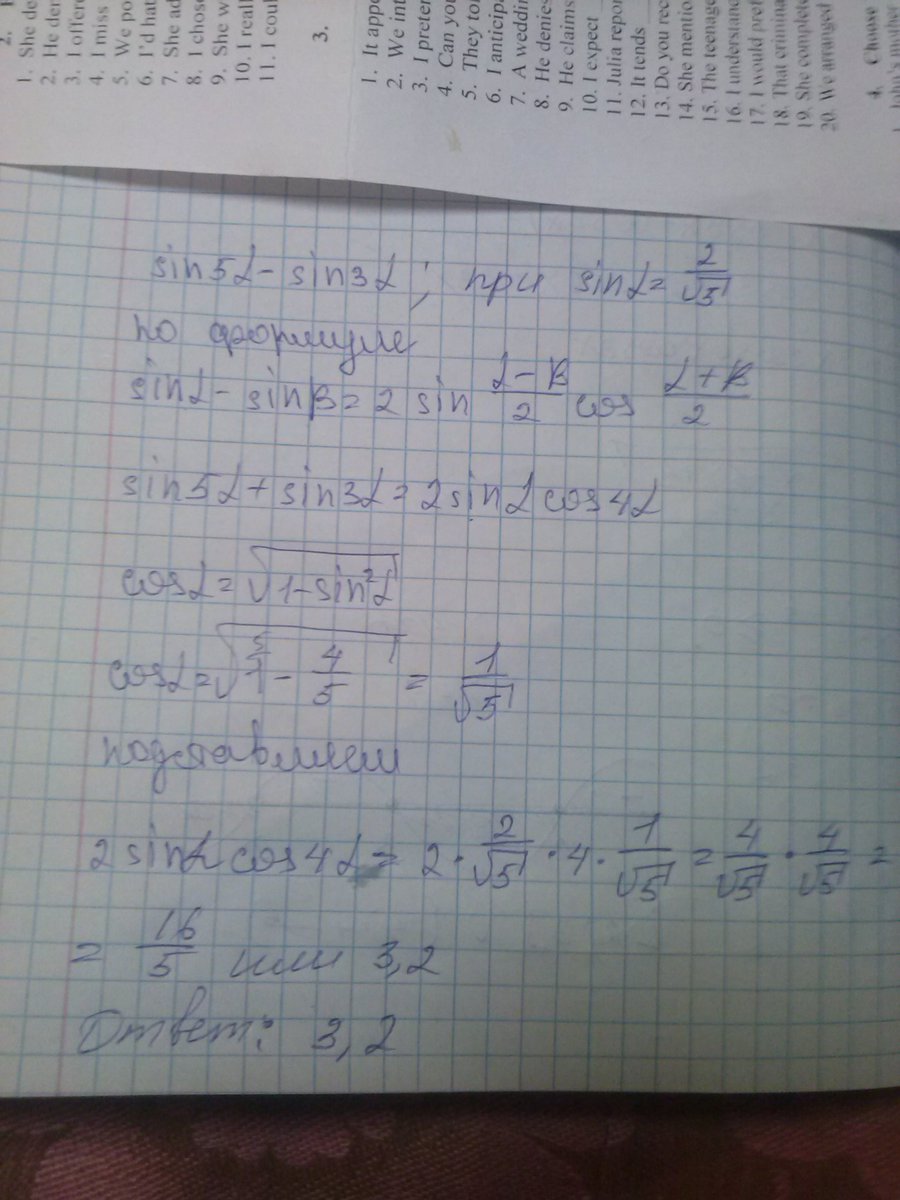 2.
1. She de
2. He den
3. I offere
4. I miss
5. We po
6. I'd hat
7. She ad
8. I chose
9. She w
10. I reall
11. I coul
3.
1. It appe
2. We int
3. I preten
4. Can yo
5. They to
6. I anticip
7. A weddin
8. He denies
9. He claims
10. I expect
11. Julia repor
12. It tends
13. Do you rec
14. She mentio
15. The teenage
16. I understand
17. I would pref
18. That crimina
19. She complete
20. We arranged
4. Choose
sin5α - sin3α ; при sinα = 2/√5
по формуле
sinα - sinβ = 2 sin (α-β)/2 cos (α+β)/2
sin5α + sin3α = 2sinα cos4α
cosα = √(1-sin²α)
cosα = √(1 - 4/5) = 1/√5
подставляем
2 sinα cos4α = 2 · 2/√5 · 4 · 1/√5 = 4/√5 · 4/√5 =
= 16/5 или 3,2
Ответ: 3,2